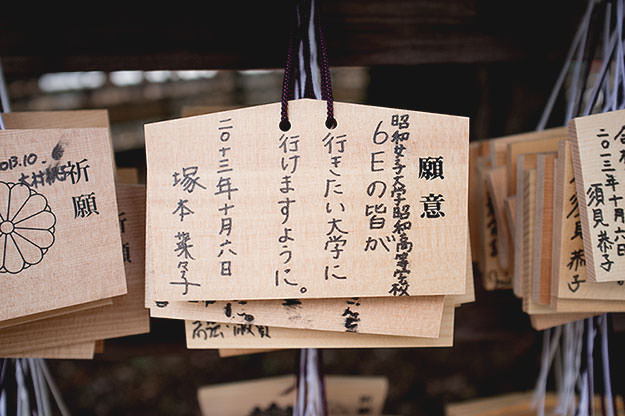 願意
昭和女子大学昭和高等学校
6Eの皆が
行きたい大学に
行けますように。
二〇十三年十月六日
塚本 菜々子
祈願
2013.10.
木村
二〇十三年十月六日
須貝恭子